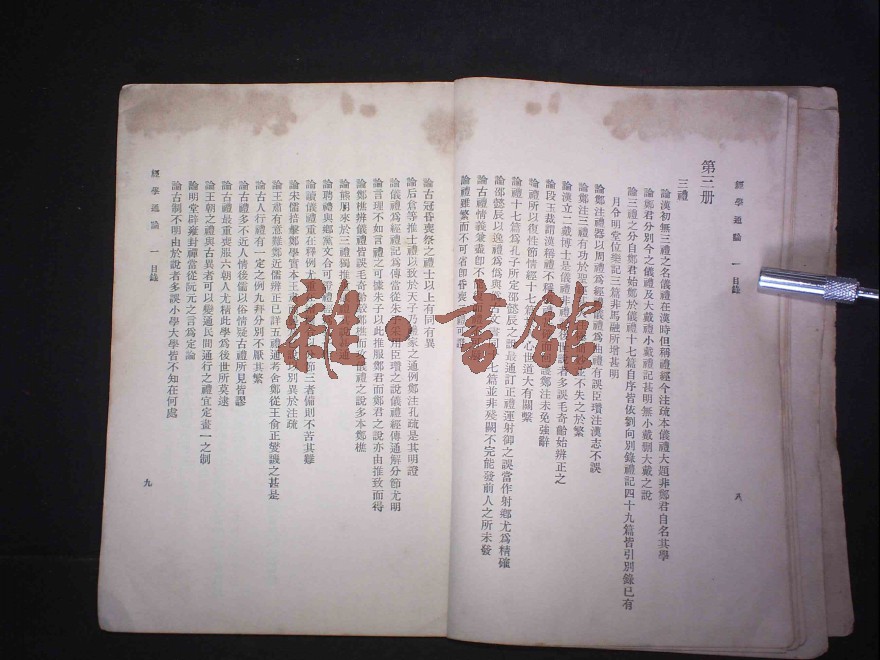 經學通論 一 目錄 八
第三册
三禮
論漢初無三禮之名儀禮在漢時但稱禮經今注疏本儀禮大題非鄭君自名其學
論鄭君分別今之儀禮及大戴禮小戴禮記甚明無小戴刪大戴之說
論三禮之分自鄭君始鄭於儀禮十七篇自序皆依劉向別錄禮記四十九篇皆引別錄已有
月令明堂位樂記三篇非馬融所增甚明
論鄭注禮器以周禮為經禮儀禮為曲禮有誤臣瓚注漢志不誤
論鄭注三禮有功於聖 不失之於繁
論漢立二戴博士是儀禮非禮 說者多誤毛奇齡始辨正之
論段玉裁謂漢稱禮不稱 護鄭注未免強辭
論禮所以復性節情經十七篇 心世道大有關繫
論禮十七篇為孔子所定邵懿辰之說最通訂正禮運射御之誤當作射鄉尤為精確
論邵懿辰以逸禮為偽與 古文書同 七篇並非殘闕不完能發前人之所未發
論古禮情義兼盡即不
論禮雖繁而不可省即昏喪
論古冠昏喪祭之禮士以上有同有異
論后倉等推士禮以致於天子乃 家之通例鄭注孔疏是其明證
論儀禮為經禮記為傳當從朱 采用臣瓚之說儀禮經傳通解分節尤明
論言理不如言禮之可據朱子以此推服鄭君而鄭君之說亦由推致而得
論鄭樵辨儀禮皆誤毛奇齡 鄭樵而 儀禮之說多本鄭樵
論熊朋來於三禮獨推
論聘禮與鄉黨文合可證禮
論讀儀禮重在釋例尤重 節三者備則不苦其難
論朱儒掊擊鄭學實本王肅而 以別異於注疏
論王肅有意難鄭近儒辨正已詳五禮通考舍鄭從王俞正燮譏之甚是
論古人行禮有一定之例九拜分別不厭其繁
論古禮多不近人情後儒以俗情疑古禮所見皆謬
論古禮最重喪服六朝人尤精此學為後世所莫逮
論王朝之禮與古異者可以變通民間通行之禮宜定畫一之制
論明堂辟雍封禪當從阮元之言為定論
論古制不明由於說者多誤小學大學皆不知在何處
經學通論 一 目錄 九
雜·書館